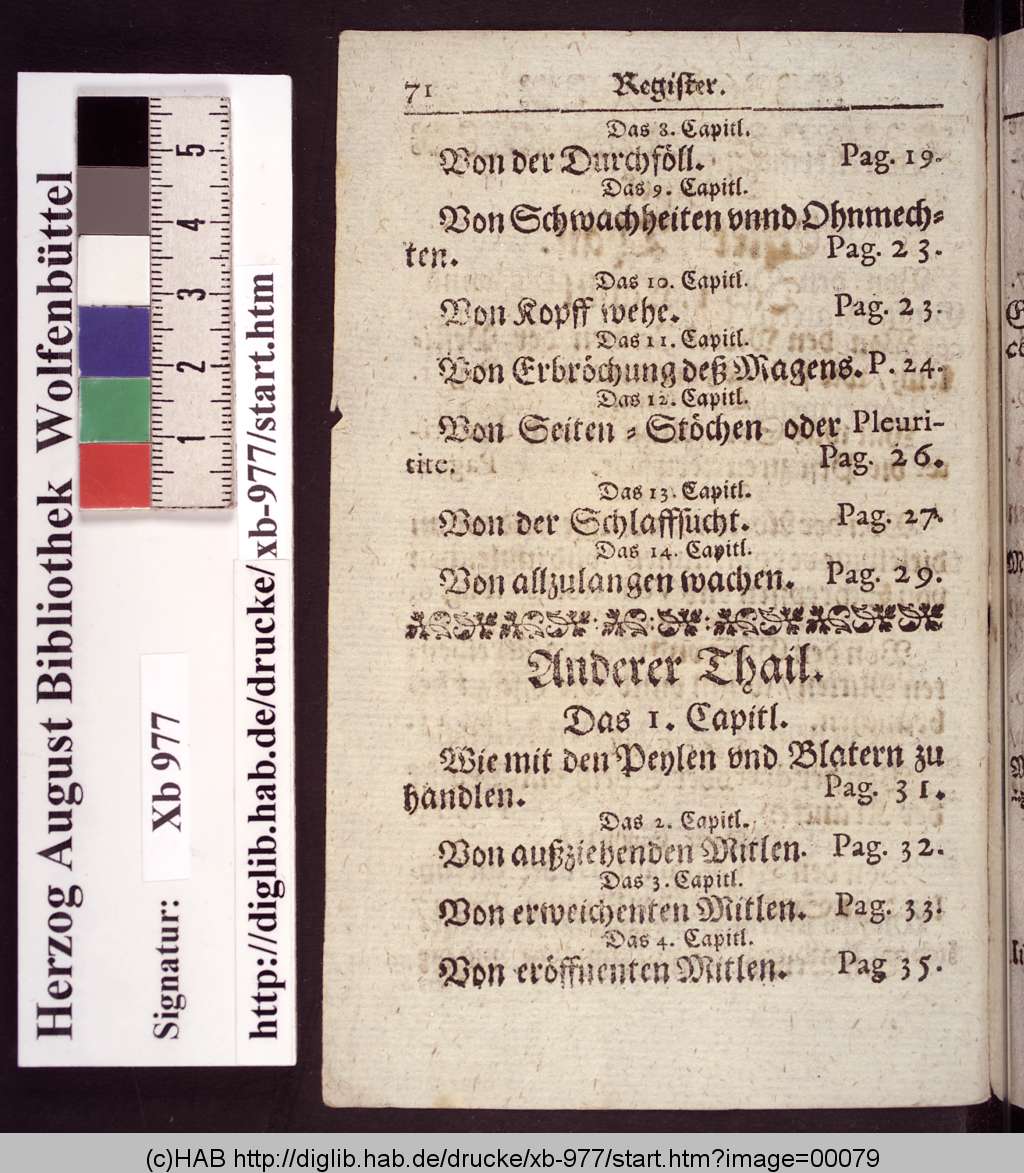 71 Register.
Das 8. Capitl.
Von der Durchföll. Pag. 19.
Das 9. Capitl.
Von Schwachheiten vnnd Ohnmech-
ten. Pag. 23.
Das 10. Capitl.
Von Kopff wehe. Pag. 23.
Das 11. Capitl.
Von Erbröchung deß Magens. P. 24.
Das 12. Capitl.
Von Seiten-Stöchen oder Pleuri-
tite. Pag. 26.
Das 13. Capitl.
Von der Schlaffsucht. Pag. 27.
Das 14. Capitl.
Von allzulangen wachen. Pag. 29.
Anderer Thail.
Das 1. Capitl.
Wie mit den Peylen vnd Blatern zu
handlen. Pag. 31.
Das 2. Capitl.
Von außziehenden Mitlen. Pag. 32.
Das 3. Capitl.
Von erweichenten Mitlen. Pag. 33.
Das 4. Capitl.
Von eröffnenten Mitlen. Pag 35.
Herzog August Bibliothek Wolfenbüttel
Signatur: Xb 977
http://diglib.hab.de/drucke/xb-977/start.htm
1 2 3 4 5
(c)HAB http://diglib.hab.de/drucke/xb-977/start.htm?image=00079